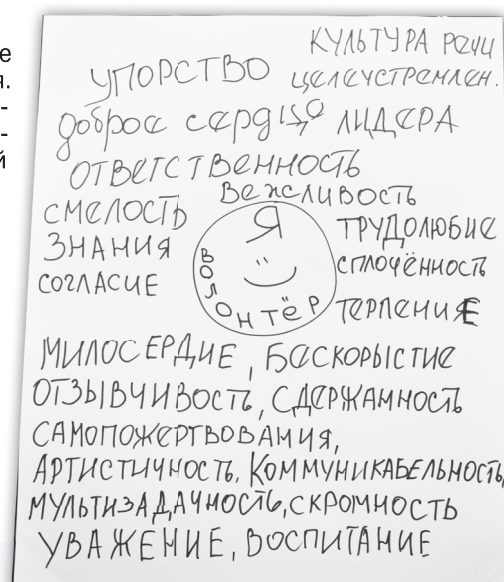 е
я.
-
-
й
КУЛЬТУРА РЕЧИ
УПОРСТВО
целеустремлен.
доброе сердце ЛИДЕРА
ОТВЕТСТВЕННОСТЬ
Вежливость
СМЕЛОСТЬ
ЗНАНИЯ
СОГЛАСИЕ
Я
ВОЛОНТЁР
ТРУДОЛЮБИЕ
СПЛОЧЁННОСТЬ
ТЕРПЕНИЕ
МИЛОСЕРДИЕ, БЕСКОРЫСТИЕ
ОТЗЫВЧИВОСТЬ, СДЕРЖАННОСТЬ
САМОПОЖЕРТВОВАНИЯ,
АРТИСТИЧНОСТЬ, КОММУНИКАБЕЛЬНОСТЬ,
МУЛЬТИЗАДАЧНОСТЬ, СКРОМНОСТЬ
УВАЖЕНИЕ, ВОСПИТАНИЕ